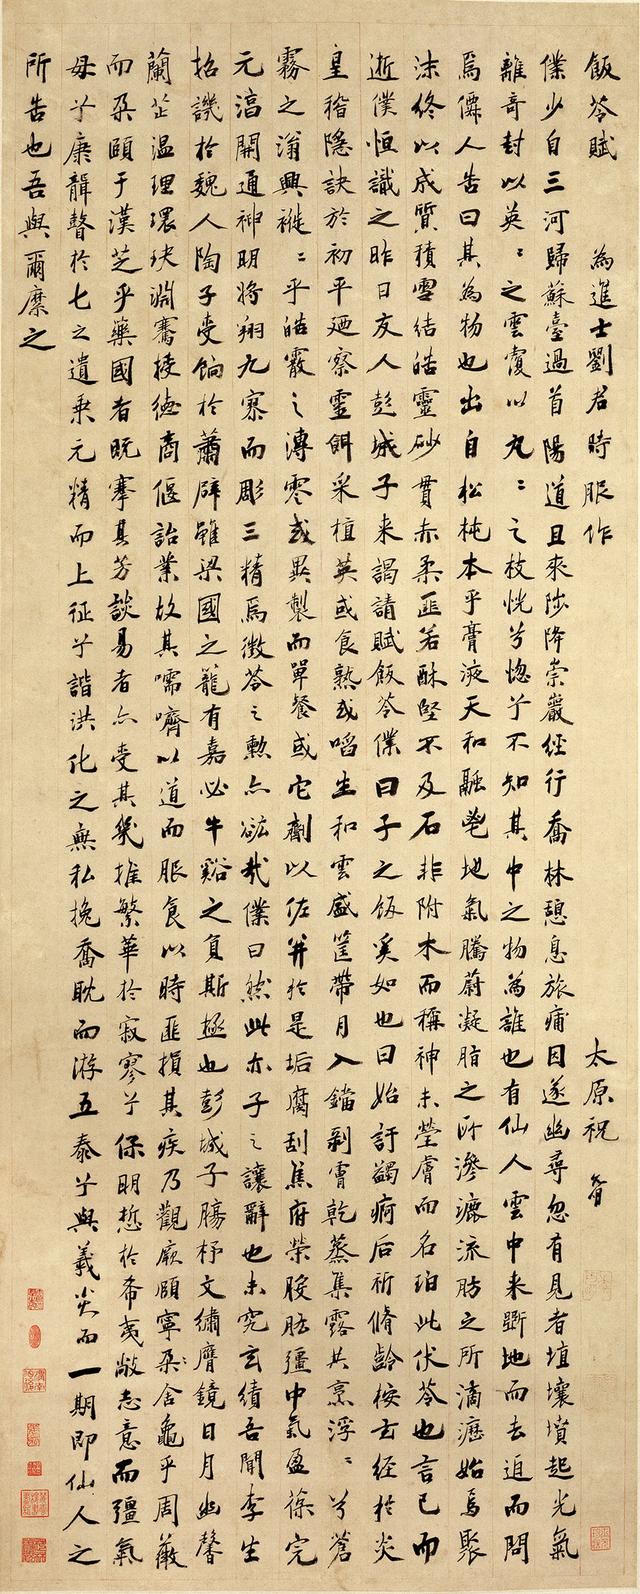 飯苓賦 為進士劉君時服作 太原祝
僕少自三河歸蘇臺過首陽道且來陟降崇巖經行喬林憩息旅痡因遂幽尋忽有見者埴壤墳起光氣
離奇封以英〻之雲覆以丸〻之枝恍兮惚兮不知其中之物為誰也有仙人雲中来斲地而去追而問
焉僊人告曰其為物也出自松杶本乎膏液天和融鬯地氣騰蔚凝脂之所滲漉流肪之所滴瀝始焉聚
沫終以成質積雪結皓靈砂貫赤柔匪若酥堅不及石非附木而稱神未瑩膚而名珀此伏苓也言已而
逝僕恒識之昨日友人彭城子来謁請賦飯苓僕曰子之飯奚如也曰始訏蠲痾后祈脩齡按玄經於炎
皇稽隱訣於初平廼察靈餌采植英或食熟或啗生和雲盛筐帶月入鐺剥膚乾蒸集露共烹浮〻兮蒼
霧之滃興褷〻乎皓霰之漙零或異製而單餐或它劑以佐并於是垢腐刮焦府榮胶肱彊中氣盈葆完
元滀開通神明将翔九寨而彫三精焉徵苓之勲亦㓜哉僕曰然此亦子之讓辭也未究玄績吾聞李生
招譏於魏人陶子受餉於蕭辟雖梁國之籠有嘉必牛谿之負斯極也彭城子腸杼文繡膺鏡日月幽馨
蘭芷温理環玦淵騫接德商偃詒業故其嚅嚌以道而服食以時匪損其疾乃觀厥頤寧朵舍龜乎周薇
而朵頤于漢芝乎藥國者既搴其芳談易者亦受其幾推繁華於寂寥兮保明悊於希夷敝志意而彊氣
母兮康韻聲於七之遺乗元精而上征兮諧洪化之無私挽喬耽而游五泰兮與羲炎而一期即仙人之
所告也吾與爾縻之